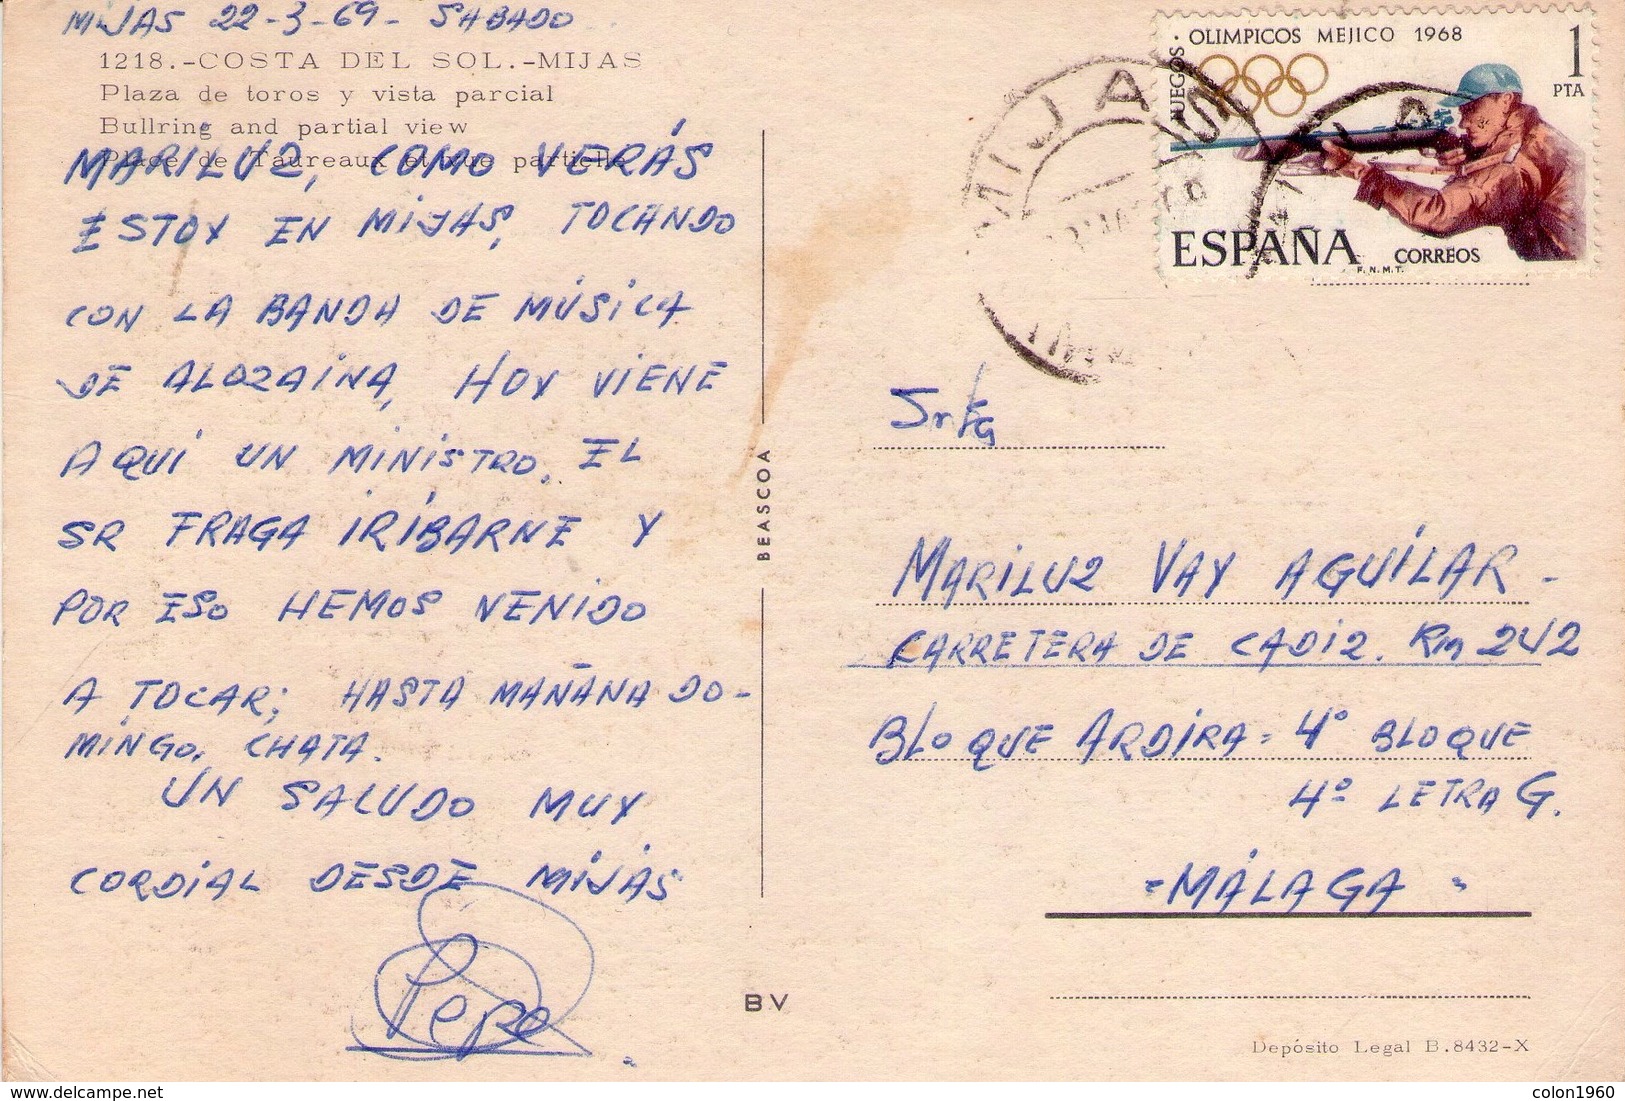 MIJAS 22-3-69- SABADO
1218.-COSTA DEL SOL.-MIJAS
Plaza de toros y vista parcial
Bullring and partial view
Place de Taureaux et vue partielle
MARILUZ, COMO VERÁS
ESTOY EN MIJAS, TOCANDO
CON LA BANDA DE MÚSICA
DE ALOZAINA, HOY VIENE
AQUI UN MINISTRO, EL
SR FRAGA IRIBARNE Y
POR ESO HEMOS VENIDO
A TOCAR; HASTA MAÑANA DO-
MINGO, CHATA.
UN SALUDO MUY
CORDIAL DESDE MIJAS
Pepe
BEASCOA
BV
JUEGOS · OLIMPICOS MEJICO 1968
1
PTA
ESPAÑA CORREOS
F.N.M.T.
MIJA
MARILUZ VAY AGUÍLAR -
CARRETERA DE CADIZ. Km 242
BLOQUE ARDIRA = 4º BLOQUE
4º LETRA G.
=MÁLAGA =
Depósito Legal B.8432-X
www.delcampe.net
colon1960